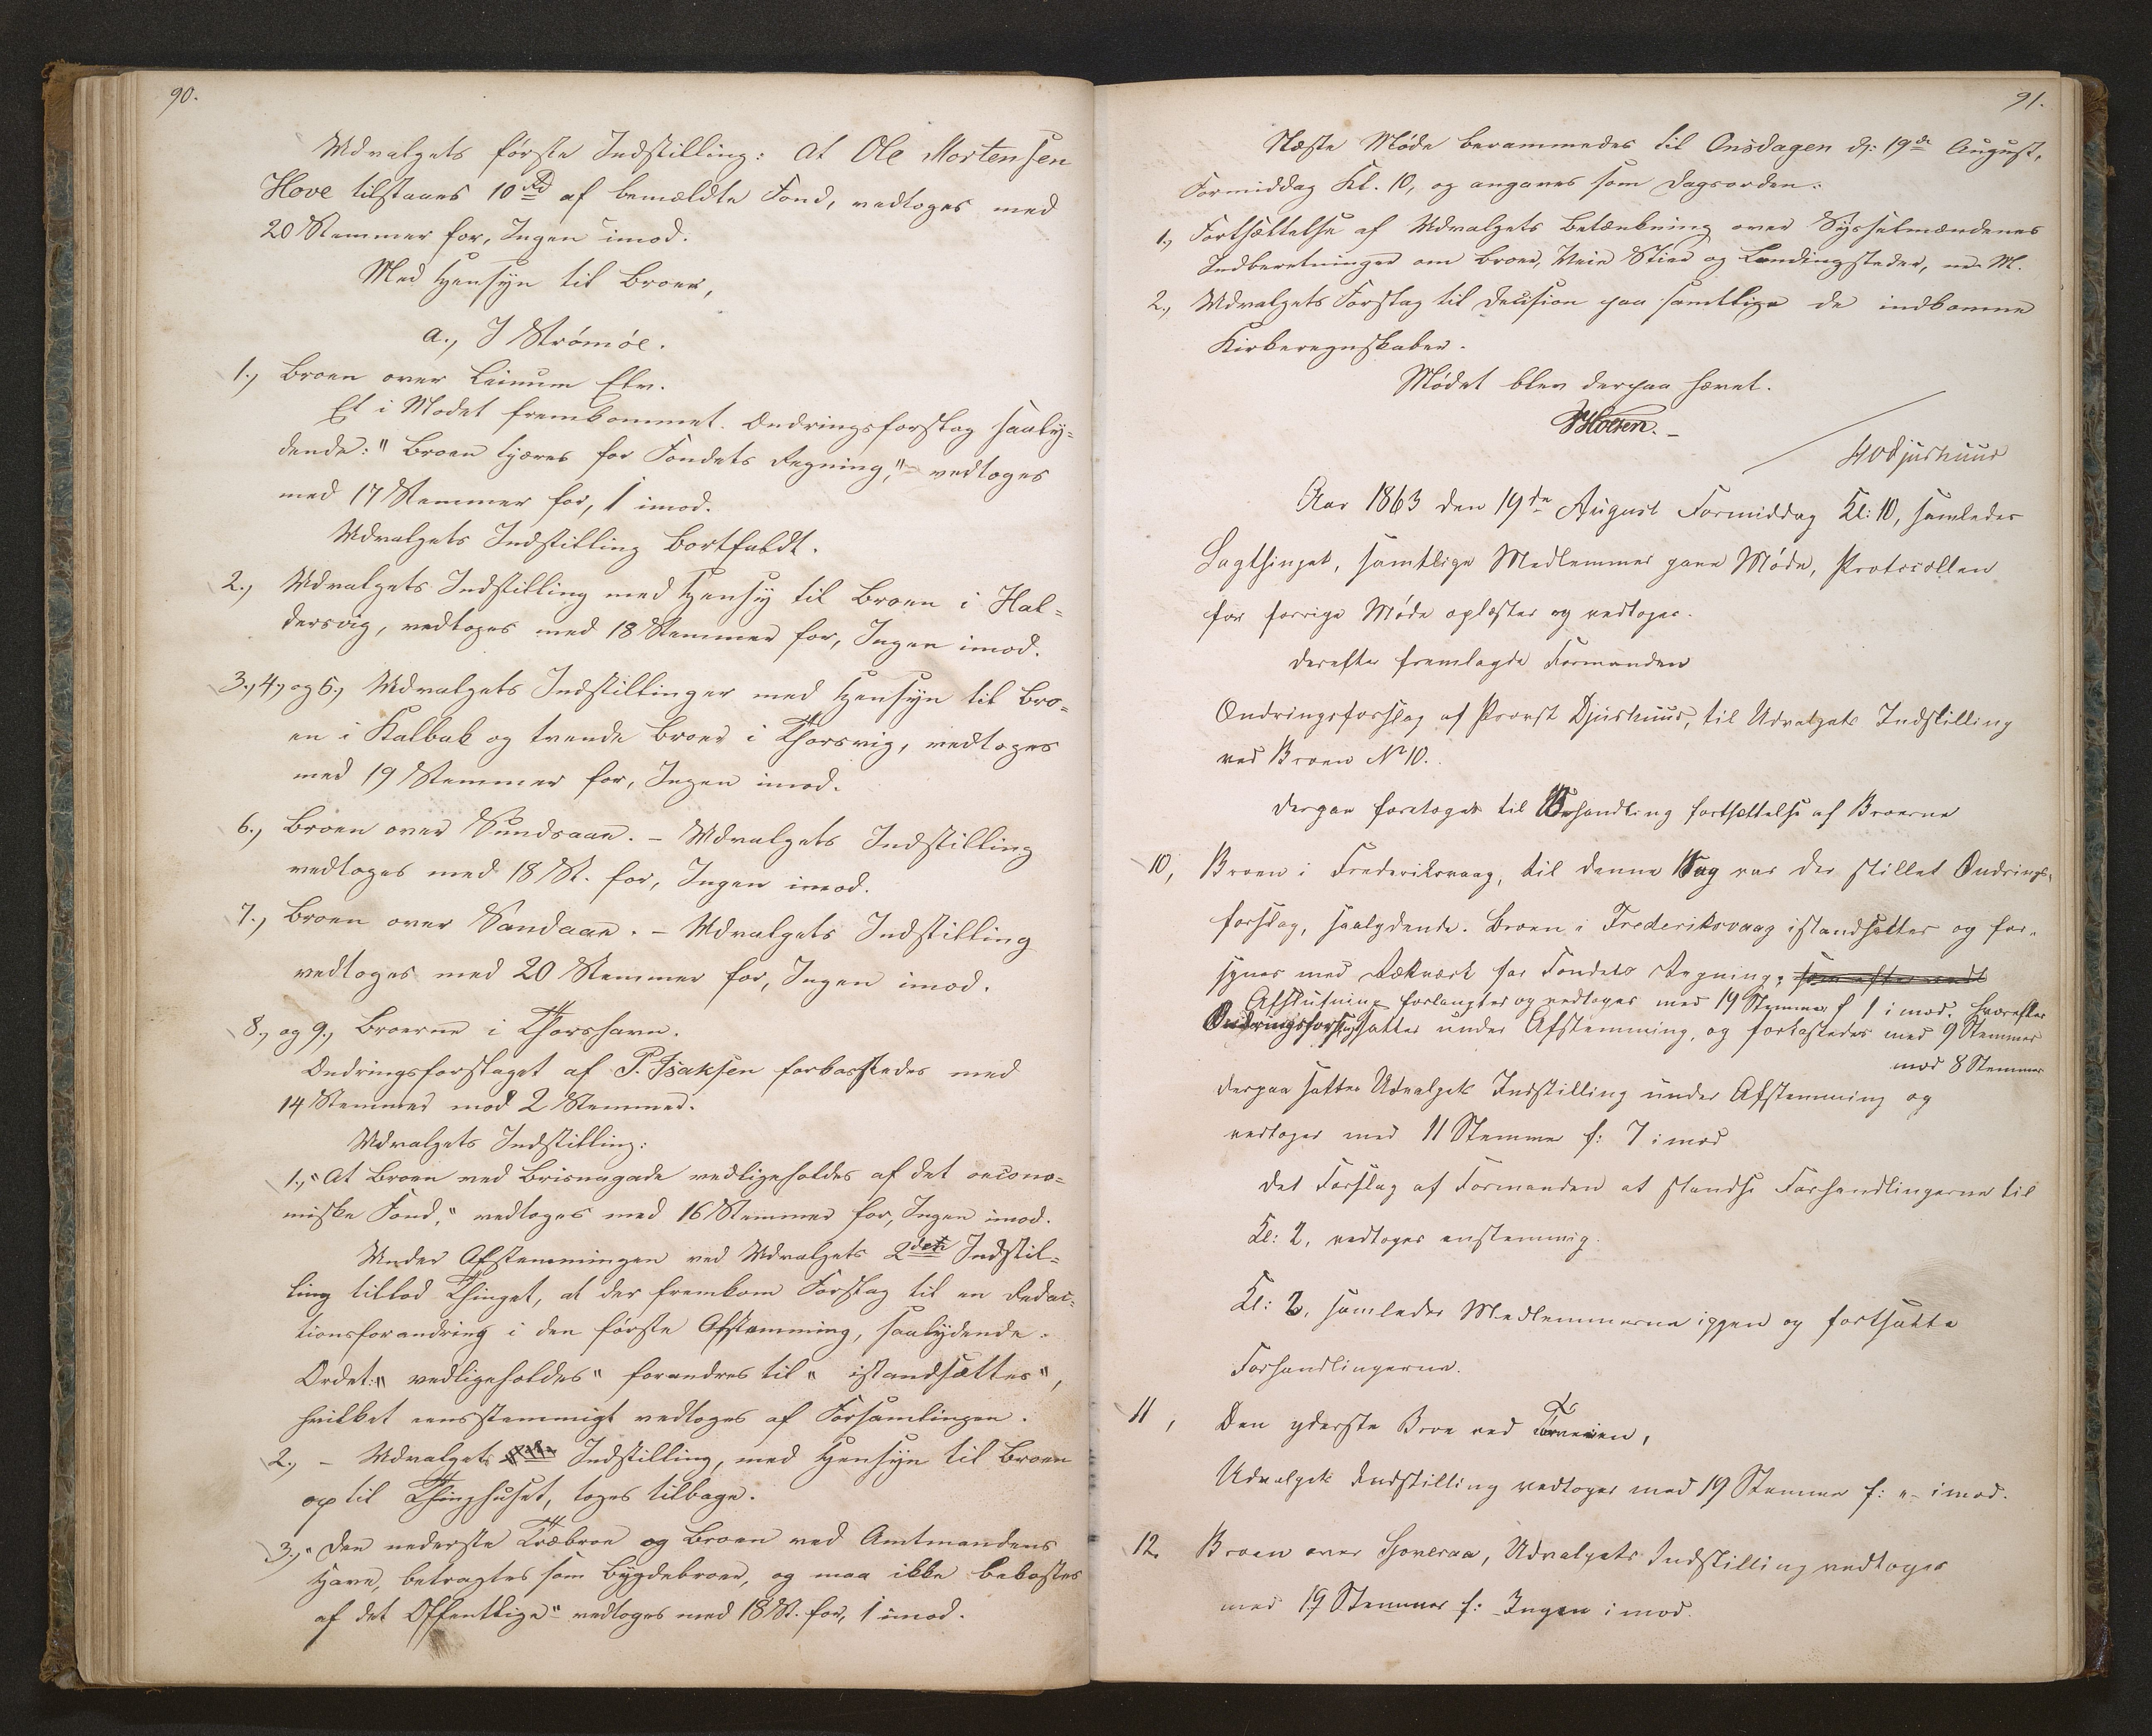 90.
Udvalgets første Indstilling: At Ole Mortensen
Hove tilstaaes 10 rd af bemældte Fond, vedtoges med
20 Stemmer for, Ingen imod.
Med Hensyn til Broer,
a., I Strømøe.
1., Broen over Leinum Elv.
Et i Mødet fremkommet Ændringsforslag saaly=
dende: "Broen tjæres for Fondets Regning," vedtoges
med 17 Stemmer for, 1 imod.
Udvalgets Indstilling bortfaldt.
2., Udvalgets Indstilling med Hensy til Broen i Hal=
dersvig, vedtoges med 18 Stemmer for, Ingen imod.
3., 4., og 5., Udvalgets Indstillinger med Hensyn til Bro=
en i Kalbak og tvende Broer i Thorsvig, vedtoges
med 19 Stemmer for, Ingen imod.
6., Broen over Sundsaae. – Udvalgets Indstilling
vedtoges med 18 St. for, Ingen imod.
7., Broen over Sandaae. – Udvalgets Indstilling
vedtoges med 20 Stemmer for, Ingen imod.
8., og 9., Broerne i Thorshavn.
Ændringsforslaget af P. Isaksen forkastedes med
14 Stemmer mod 2 Stemmer.
Udvalgets Indstilling:
1., "At Broen ved Brisnagade vedligeholdes af det oecono=
miske Fond," vedtoges med 16 Stemmer for, Ingen imod.
Under Afstemningen ved Udvalgets 2den Indstil=
ling tillod Thinget, at der fremkom Forslag til en Redac=
tionsforandring i den første Afstemning, saalydende.
Ordet "vedligeholdes" forandres til "istandsættes",
hvilket eensstemmigt vedtoges af Forsamlingen.
2., – Udvalgets Indstilling, med Hensyn til Broen
op til Thinghuset, toges tilbage.
3., "Den nederste Træbroe og Broen ved Amtmandens
Have, betragtes som Bygdebroer, og maa ikke bekostes
af det Offentlige" vedtoges med 18 St. for, 1 imod.
91.
Næste Møde berammedes til Onsdagen d. 19de August,
Formiddag Kl. 10, og angaves som Dagsorden:
1., Fortsættelse af Udvalgets Betænkning over Sysselmændenes
Indberetninger om Broer, Veie Stier og Landingsteder, m. M.
2., Udvalgets Forslag til Decision paa samtlige de indkomne
Kirkeregnskaber.
Mødet blev derpaa hævet.
Holten. –
Djurhuus
Aar 1863 den 19de August Formiddag Kl: 10, samledes
Lagthinget, samtlige Medlemmer gave Møde, Protocollen
for forrige Møde oplæstes og vedtoges.
Derefter fremlagde Formanden
Ændringsforslag af Provst Djurhuus, til Udvalgets Indstilling
ved Broen Nr 10.
Derpaa foretoges til Behandling fortsættelse af Broerne
10, Broen i Frederiksvaag, til denne Sag var der stillet Ændrings=
forslag, saalydende. Broen i Frederiksvaag istandsættes og for=
synes med Rækværk for Fondets Regning, som efter endt
Afslutning forlangtes og vedtoges med 19 Stemmer f 1 i mod. hvorefter
Ændringsforslag sattes under Afstemning, og forkastedes med 9 Stemmer
mod 8 Stemmer
Derpaa sattes Udvalgets Indstilling under Afstemning og
vedtoges med 11 Stemme f: 7 i mod
Det Forslag af Formanden at standse Forhandlingerne til
Kl: 2, vedtoges enstemmig.
Kl: 2, samledes Medlemmerne iggen og fortsatte
Forhandlingerne.
11, Den yderste Broe ved
Udvalgets Indstilling vedtoges med 19 Stemmer f: "– imod.
12. Broen over Hoveraa, Udvalgets Indstilling vedtoges
med 19 Stemmer f: Ingen i mod.